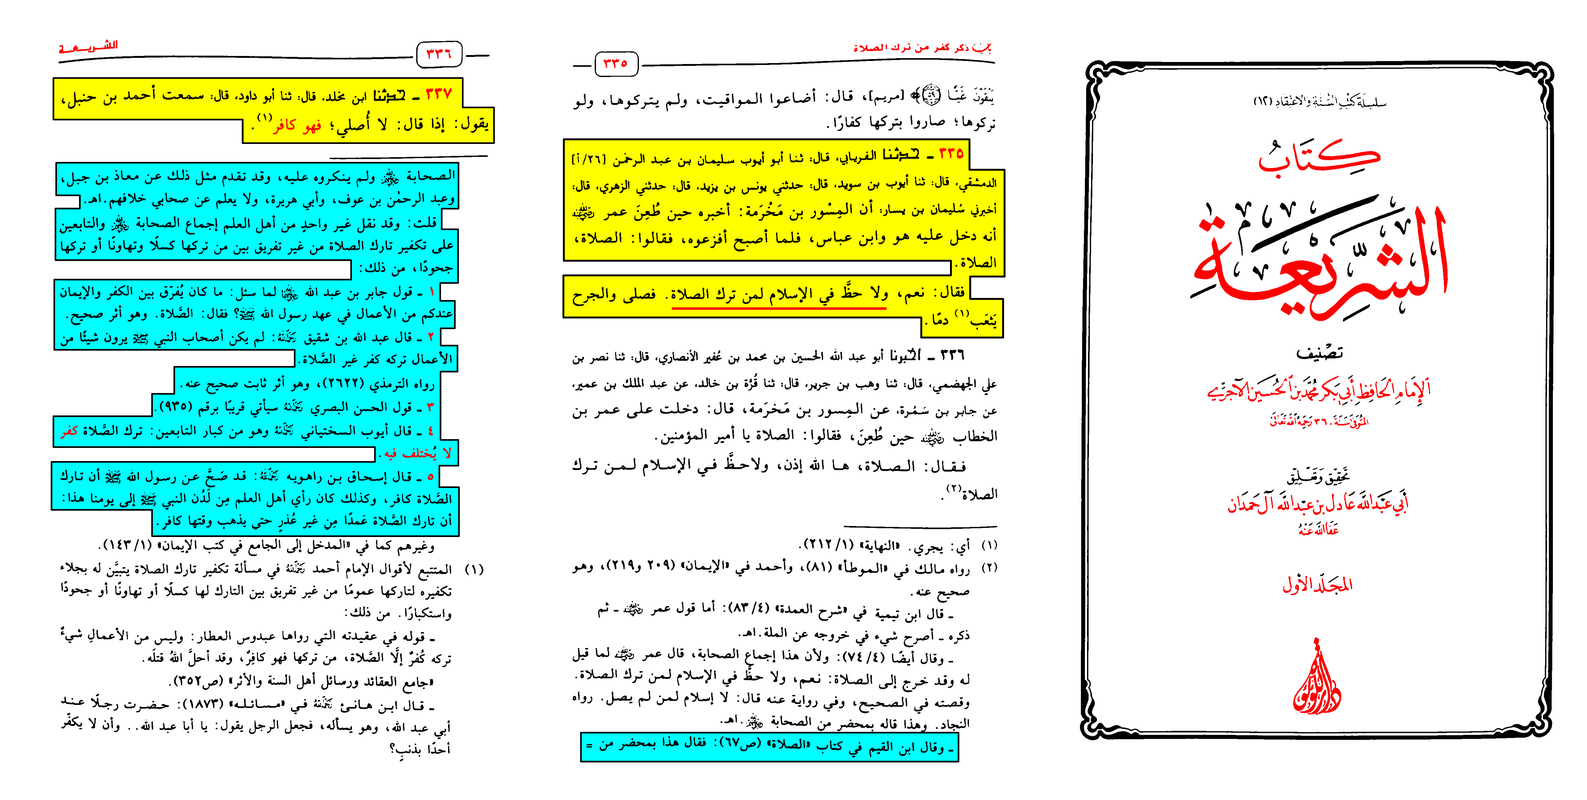 سلسلة كتب السنة والاعتقاد (١٢)
كتاب
الشريعة
تصنيف
الإمام الحافظ أبي بكر محمد بن الحسين الآجري
المتوفى سنة ٣٦٠ رحمه الله تعالى
تحقيق وتعليق
أبي عبدالله عادل بن عبدالله آل حمدان
عفا الله عنه
المجلد الأول
باب ذكر كفر من ترك الصلاة
٣٣٥
يَلْقَوْنَ غَيًّا ﴿٥٩﴾ [مريم]، قال: أضاعوا المواقيت، ولم يتركوها، ولو
تركوها؛ صاروا بتركها كفارًا.
٣٣٥ ـ حدثنا الفريابي، قال: ثنا أبو أيوب سليمان بن عبد الرحمٰن [٢٦/أ]
الدمشقي، قال: ثنا أيوب بن سويد، قال: حدثني يونس بن يزيد، قال: حدثني الزهري، قال:
أخبرني سُليمان بن يسار: أن المِسْور بن مَخْرَمة: أخبره حين طُعِنَ عمر ﵁
أنه دخل عليه هو وابن عباس، فلما أصبح أفزعوه، فقالوا: الصلاة،
الصلاة.
فقال: نعم، ولا حظَّ في الإسلام لمن ترك الصلاة. فصلى والجرح
يَثعَب(١) دمًا.
٣٣٦ ـ أخبرنا أبو عبد الله الحسين بن محمد بن عُفير الأنصاري، قال: ثنا نصر بن
علي الجهضمي، قال: ثنا وهب بن جرير، قال: ثنا قُرَّة بن خالد، عن عبد الملك بن عمير،
عن جابر بن سَمُرة، عن المِسور بن مَخرَمة، قال: دخلت على عمر بن
الخطاب ﵁ حين طُعِنَ، فقالوا: الصلاة يا أمير المؤمنين.
فـقـال: الـصـلاة، هـا الله إذن، ولاحظَّ فـي الإسلام لـمـن تـرك
الصلاة(٢).
(١) أي: يجري. «النهاية» (٢١٢/١).
(٢) رواه مالك في «الموطأ» (٨١)، وأحمد في «الإيمان» (٢٠٩ و٢١٩)، وهو
صحيح عنه.
ـ قال ابن تيمية في «شرح العمدة» (٨٣/٤): أما قول عمر ﵁ ـ ثم
ذكره ـ أصرح شيء في خروجه عن الملة.اهـ.
ـ وقال أيضًا (٧٤/٤): ولأن هذا إجماع الصحابة، قال عمر ﵁ لما قيل
له وقد خرج إلى الصلاة: نعم، ولا حظَّ في الإسلام لمن ترك الصلاة.
وقصته في الصحيح، وفي رواية عنه قال: لا إسلام لمن لم يصل. رواه
النجاد. وهذا قاله بمحضر من الصحابة ﵃.اهـ.
ـ وقال ابن القيم في كتاب «الصلاة» (ص٦٧): فقال هذا بمحضر من =
الشريعة
٣٣٦
٣٣٧ ـ حدثنا ابن مخلد، قال: ثنا أبو داود، قال: سمعت أحمد بن حنبل،
يقول: إذا قال: لا أُصلي؛ فهو كافر(١).
الصحابة ﵃ ولم ينكروه عليه، وقد تقدم مثل ذلك عن معاذ بن جبل،
وعبد الرحمٰن بن عوف، وأبي هريرة، ولا يعلم عن صحابي خلافهم.اهـ.
قلت: وقد نقل غير واحدٍ من أهل العلم إجماع الصحابة ﵃ والتابعين
على تكفير تارك الصلاة من غير تفريق بين من تركها كسلًا وتهاونًا أو تركها
جحودًا، من ذلك:
١ ـ قول جابر بن عبد الله ﵄ لما سئل: ما كان يُفرّق بين الكفر والإيمان
عندكم من الأعمال في عهد رسول الله ﷺ؟ فقال: الصَّلاة. وهو أثر صحيح.
٢ ـ قال عبد الله بن شقيق ﵀: لم يكن أصحاب النبي ﷺ يرون شيئًا من
الأعمال تركه كفر غير الصَّلاة.
رواه الترمذي (٢٦٢٢)، وهو أثر ثابت صحيح عنه.
٣ ـ قول الحسن البصري ﵀ سيأتي قريبًا برقم (٩٣٥).
٤ ـ قال أيوب السختياني ﵀ وهو من كبار التابعين: ترك الصَّلاة كفر
لا يُختلف فيه.
٥ ـ قال إسحاق بن راهويه ﵀: قد صَحَّ عن رسول الله ﷺ أن تارك
الصَّلاة كافر، وكذلك كان رأي أهل العلم مِن لَدُن النبي ﷺ إلى يومنا هذا:
أن تارك الصَّلاة عَمدًا مِن غير عُذرٍ حتى يذهب وقتها كافر.
وغيرهم كما في «المدخل إلى الجامع في كتب الإيمان» (١٤٣/١).
(١) المتتبع لأقوال الإمام أحمد ﵀ في مسألة تكفير تارك الصلاة يتبيَّن له بجلاء
تكفيره لتاركها عمومًا من غير تفريق بين التارك لها كسلًا أو تهاونًا أو جحودًا
واستكبارًا. من ذلك:
ـ قوله في عقيدته التي رواها عبدوس العطار: وليس من الأعمالِ شيءٌ
تركه كُفرٌ إلَّا الصَّلاة، من تركها فهو كافِرٌ، وقد أحلَّ اللهُ قتلَه.
«جامع العقائد ورسائل أهل السنة والأثر» (ص٣٥٢).
ـ قـال ابـن هـانـئ ﵀ فـي «مـسـائـلـه» (١٨٧٣): حـضـرت رجـلًا عـنـد
أبي عبد الله، وهو يسأله، فجعل الرجل يقول: يا أبا عبد الله.. وأن لا يكفّر
أحدًا بذنبٍ؟